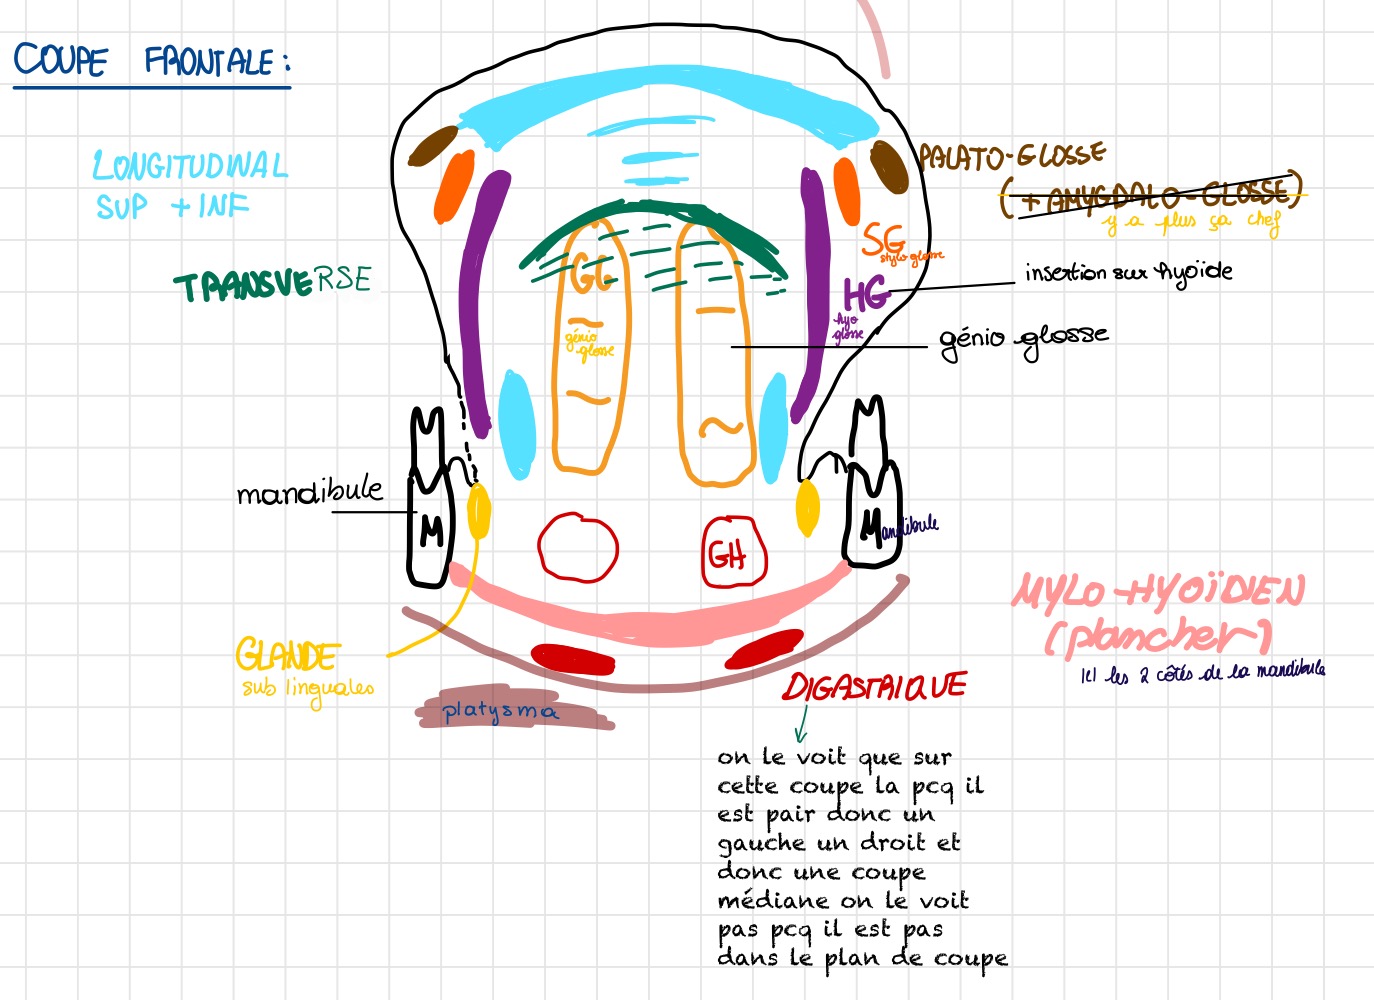 COUPE FRONTALE :
LONGITUDINAL
SUP + INF
TRANSVERSE
PALATO-GLOSSE
(+ AMYGDALO-GLOSSE)
y a plus ça chef
SG
stylo glosse
HG
hyo
glosse
insertion sur hyoïde
GG
génio
glosse
génio glosse
mandibule
M
Mandibule
GH
GLANDE
sub linguales
MYLO-HYOÏDIEN
(plancher)
ici les 2 côtés de la mandibule
platysma
DIGASTRIQUE
on le voit que sur
cette coupe la pcq il
est pair donc un
gauche un droit et
donc une coupe
médiane on le voit
pas pcq il est pas
dans le plan de coupe